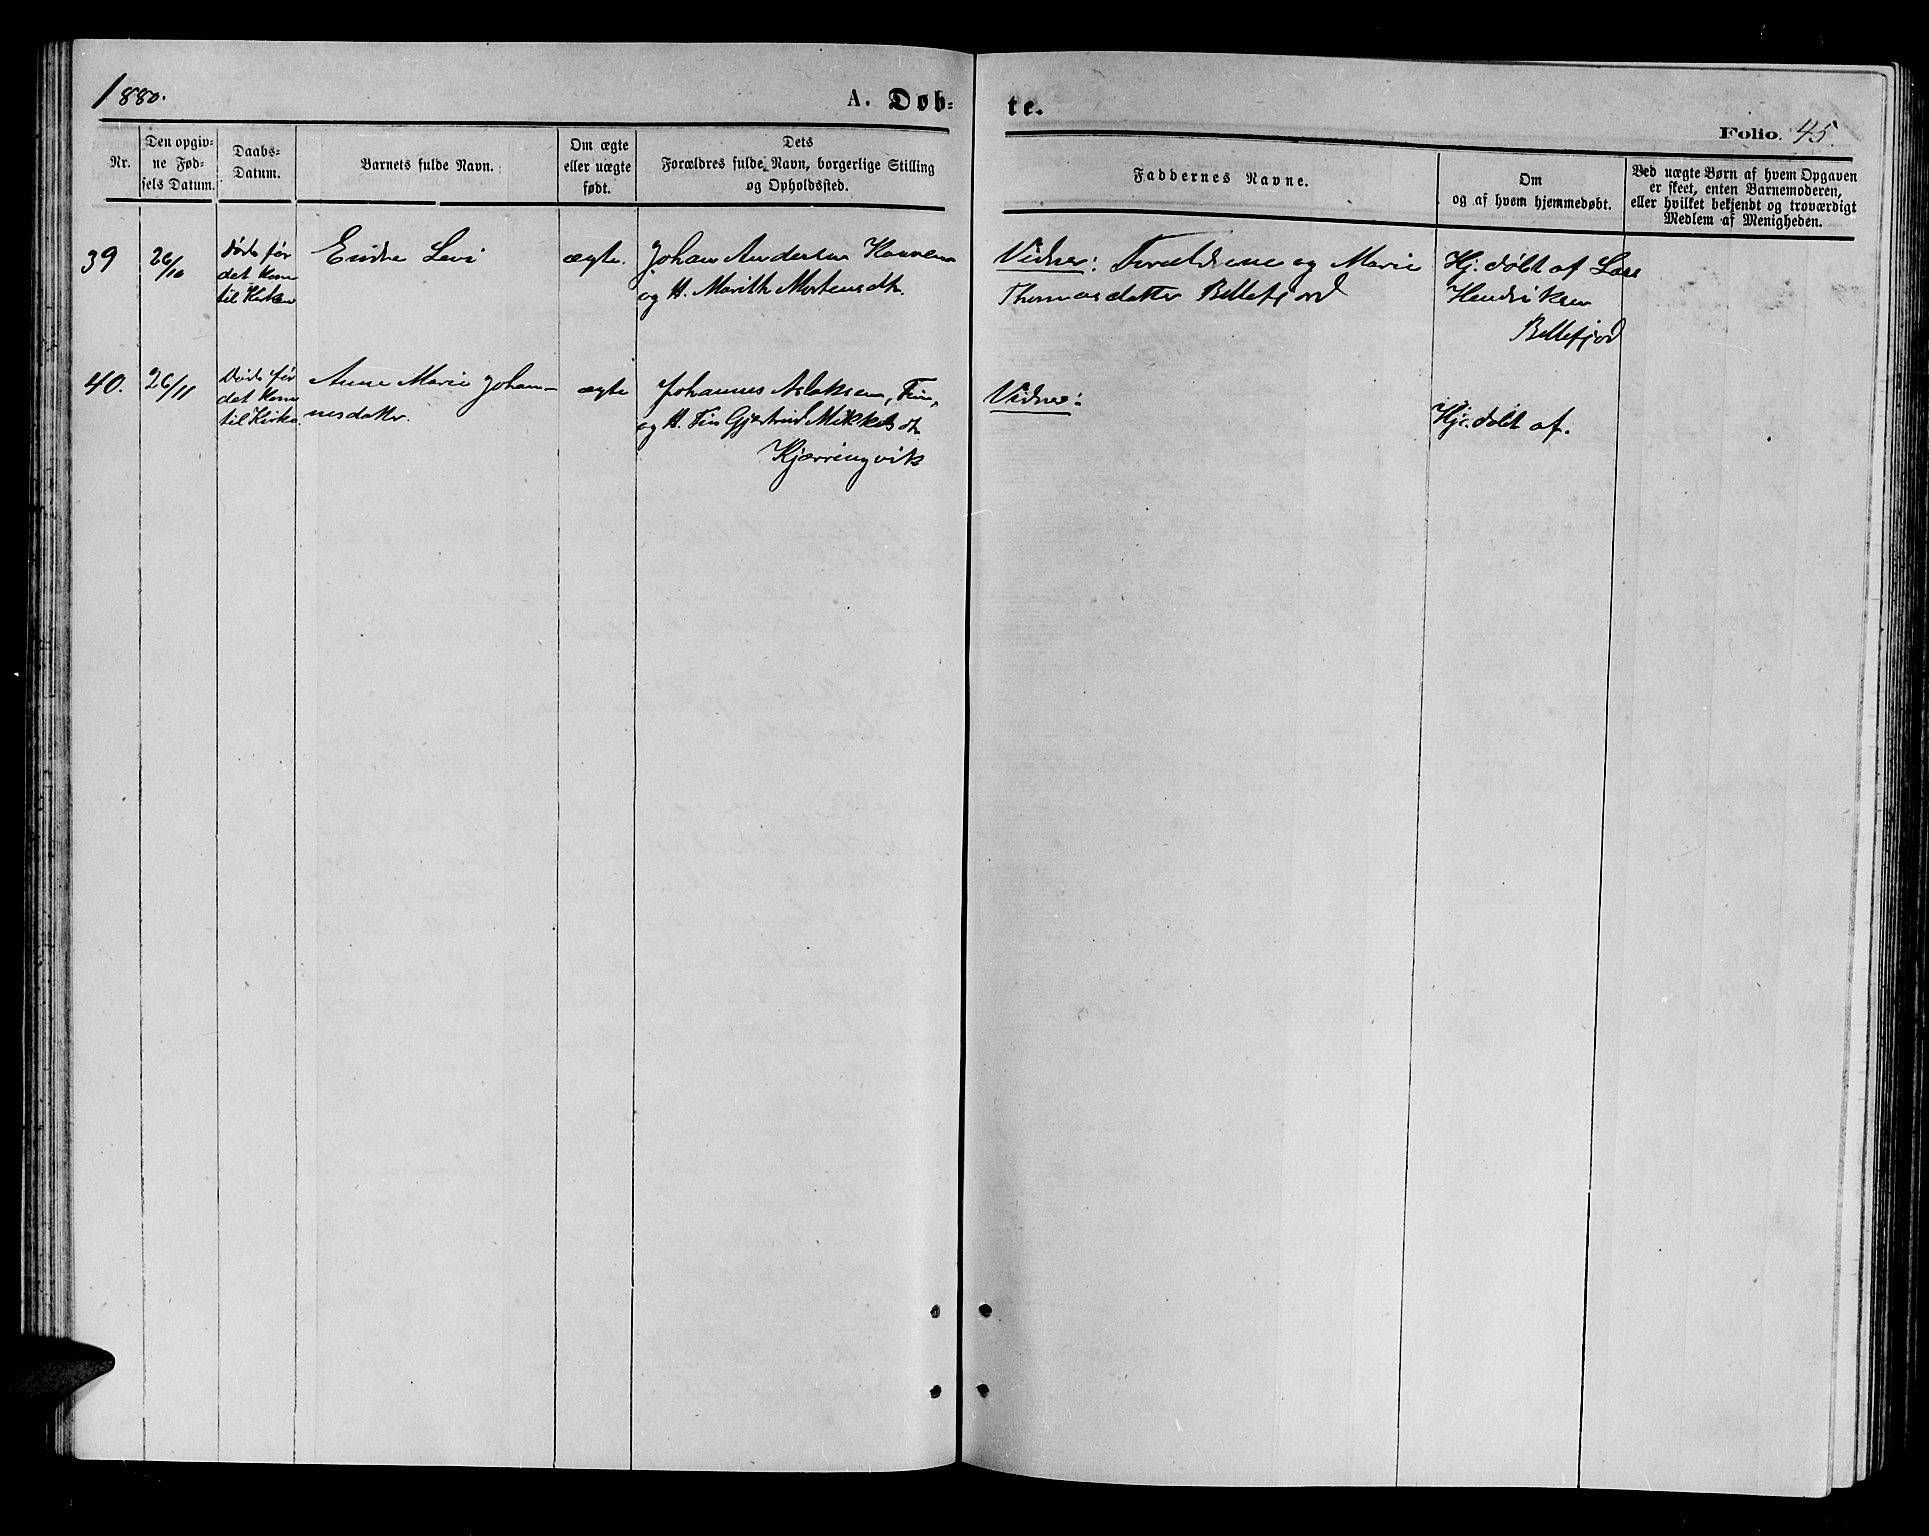 1880.
A. Døb-
te.
Folio 45.
Nr.
Den opgiv-
ne Fød-
sels Datum.
Daabs-
Datum.
Barnets fulde Navn.
Om ægte
eller uægte
født.
Dets
Forældres fulde Navn, borgerlige Stilling
og Opholdssted.
Faddernes Navne.
Om
og af hvem hjemmedøbt.
Ved uægte Børn af hvem Opgaven
er skeet, enten Barnemoderen,
eller hvilket bekjendt og troværdigt
Medlem af Menigheden.
39
26/10
døde før
det kom
til Kirken
Endre Levi
ægte.
Johan Andersen
og H. Marith Mortensdtr.
Vidner: Forældrene og Marie
Thomasdatter Billefjord
Hj. døbt af Lars
Hendriksen
Billefjord
40.
26/11
Døde før
det kom
til Kirke
Anne Marie Johan-
nesdatter.
ægte
Johannes Aslaksen, Fin,
og H. Fin Gjertrud Mikkelsdtr.
Kjærringvik
Vidner:
Hje. døbt af.